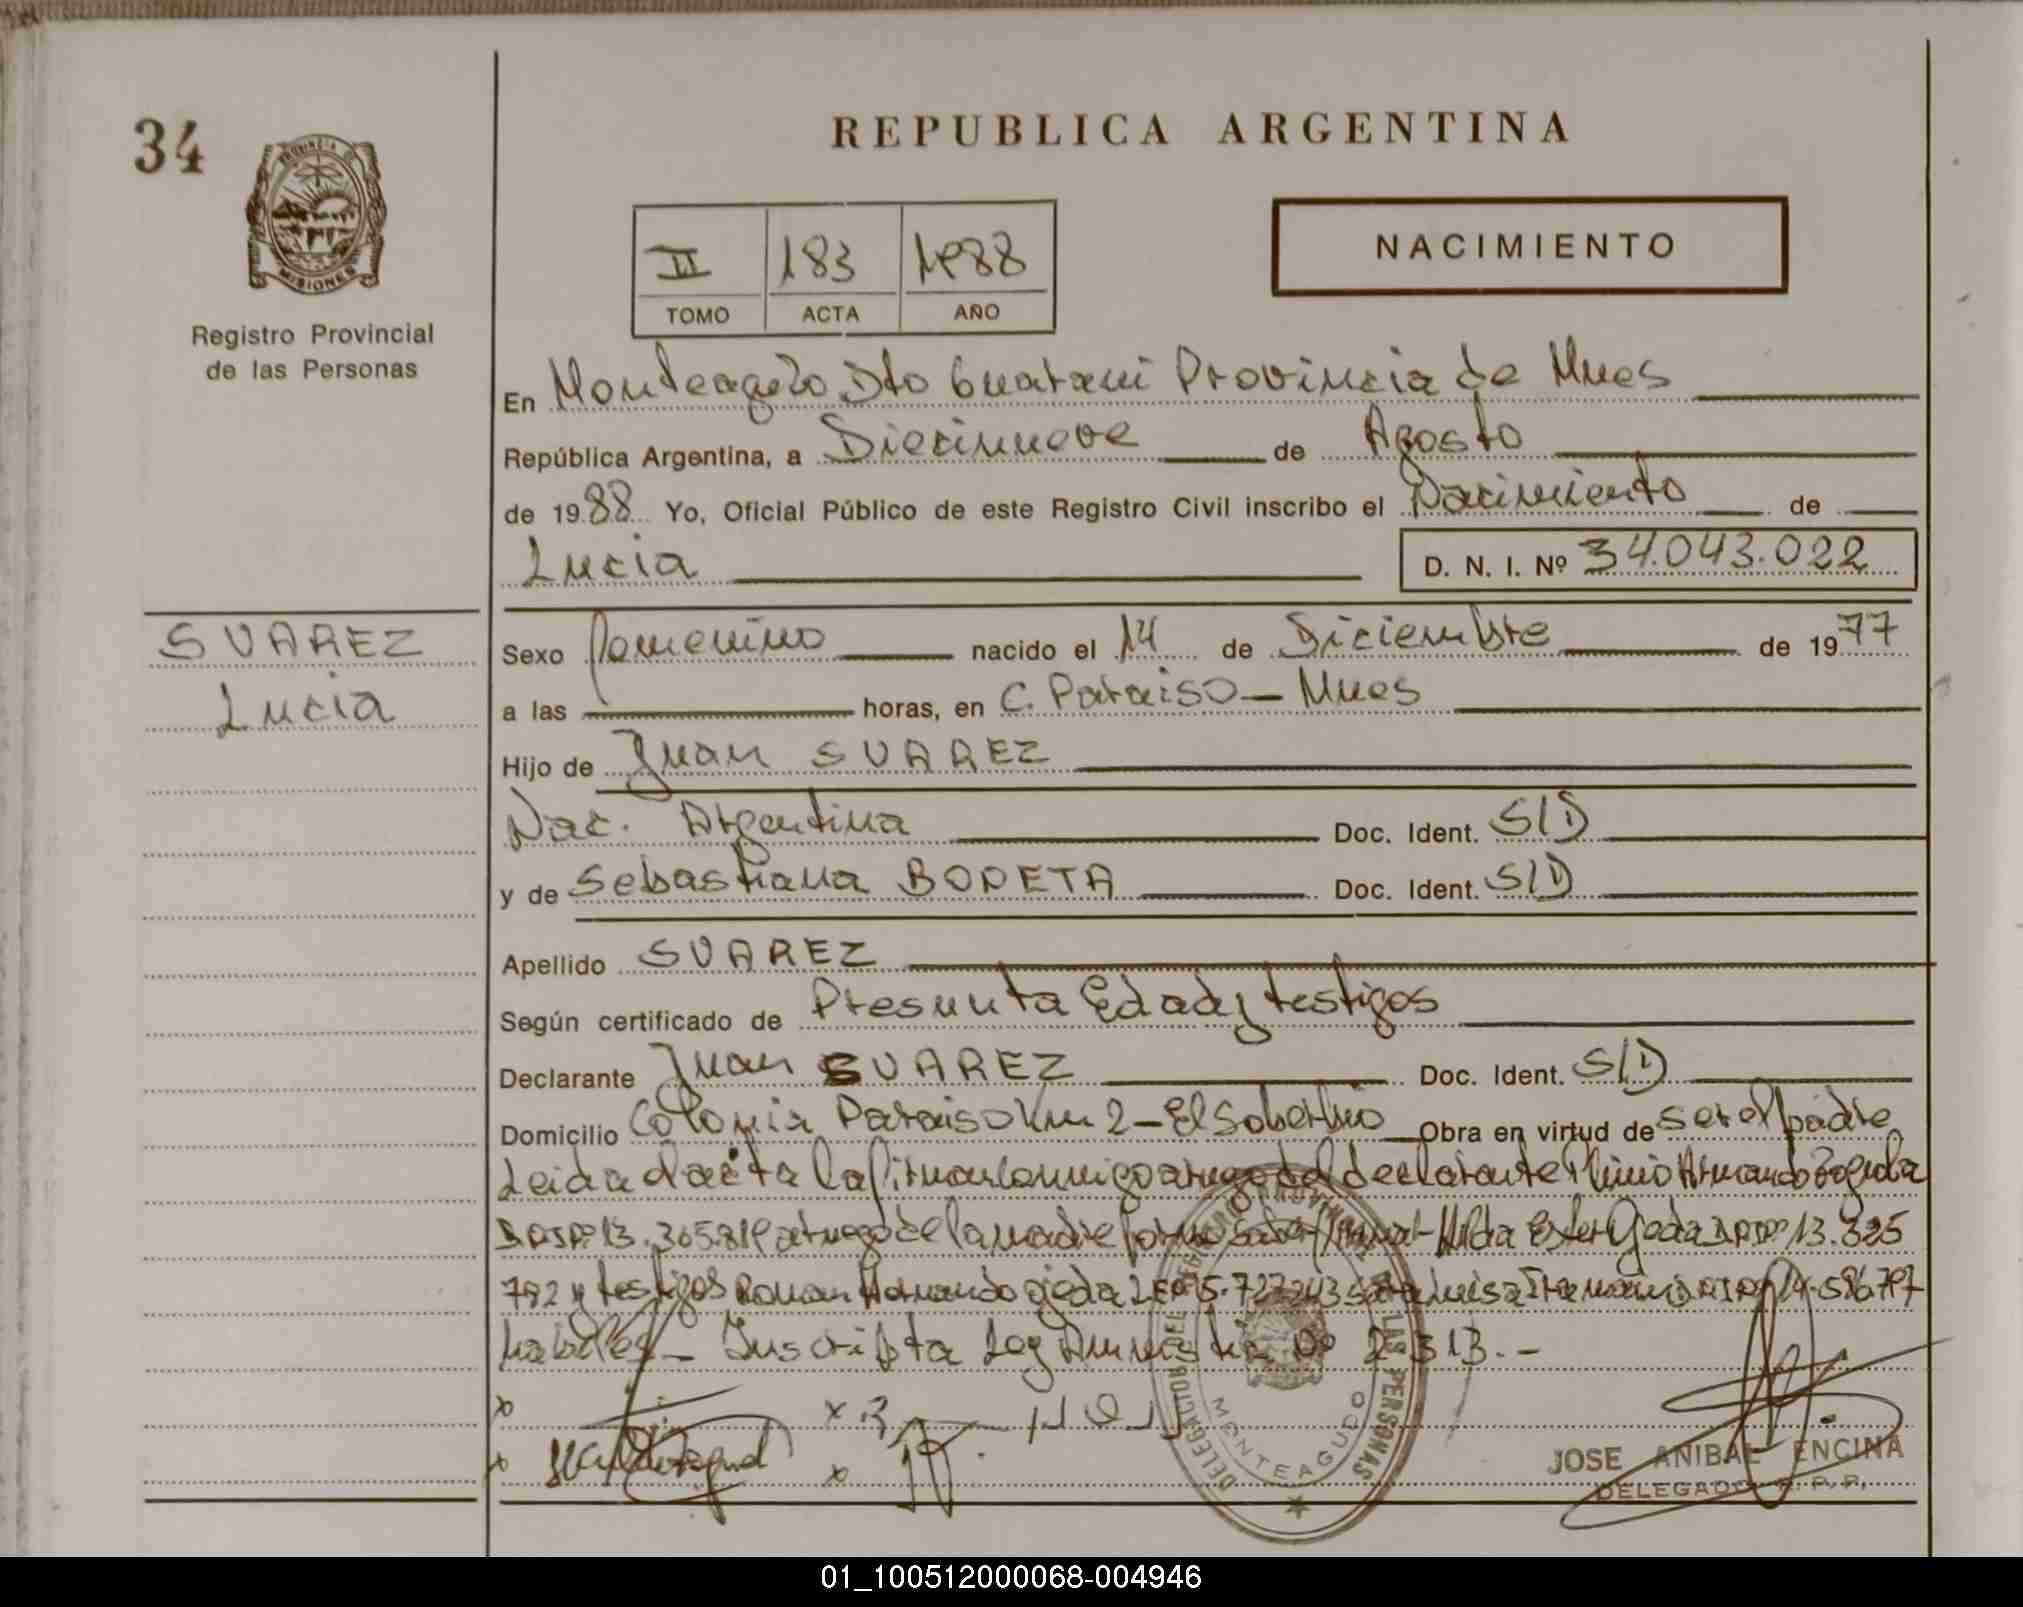 34
PROVINCIA DE
MISIONES
Registro Provincial
de las Personas
REPUBLICA ARGENTINA
II 183 1988
TOMO ACTA AÑO
NACIMIENTO
En Monteagudo Dto Guarani Provincia de Mnes
República Argentina, a Diecinueve de Agosto
de 1988 Yo, Oficial Público de este Registro Civil inscribo el Nacimiento de
Lucia D. N. I. Nº 34.043.022
SUAREZ
Lucia
Sexo femenino nacido el 14 de Diciembre de 1977
a las horas, en C. Paraiso - Mnes
Hijo de Juan SUAREZ
Nac. Argentina Doc. Ident. S/D
y de Sebastiana Doc. Ident. S/D
Apellido SUAREZ
Según certificado de Presunta Edad y testigos
Declarante Juan SUAREZ Doc. Ident. S/D
Domicilio Colonia Paraiso Km 2 - El Soberbio Obra en virtud de ser el padre
Leida el acta la firman conmigo a ruego del declarante Armando
13.365.819 a ruego de la madre Hilda Ester Ojeda 13.325
792 y testigos Roman Hernando Ojeda Luisa
habiles - Inscripta Ley Amnistia Nº 2313.-
DELEGACION DEL REGISTRO PROVINCIAL DE LAS PERSONAS
MONTEAGUDO
JOSE ANIBAL ENCINA
DELEGADO R. P. P.
01_100512000068-004946